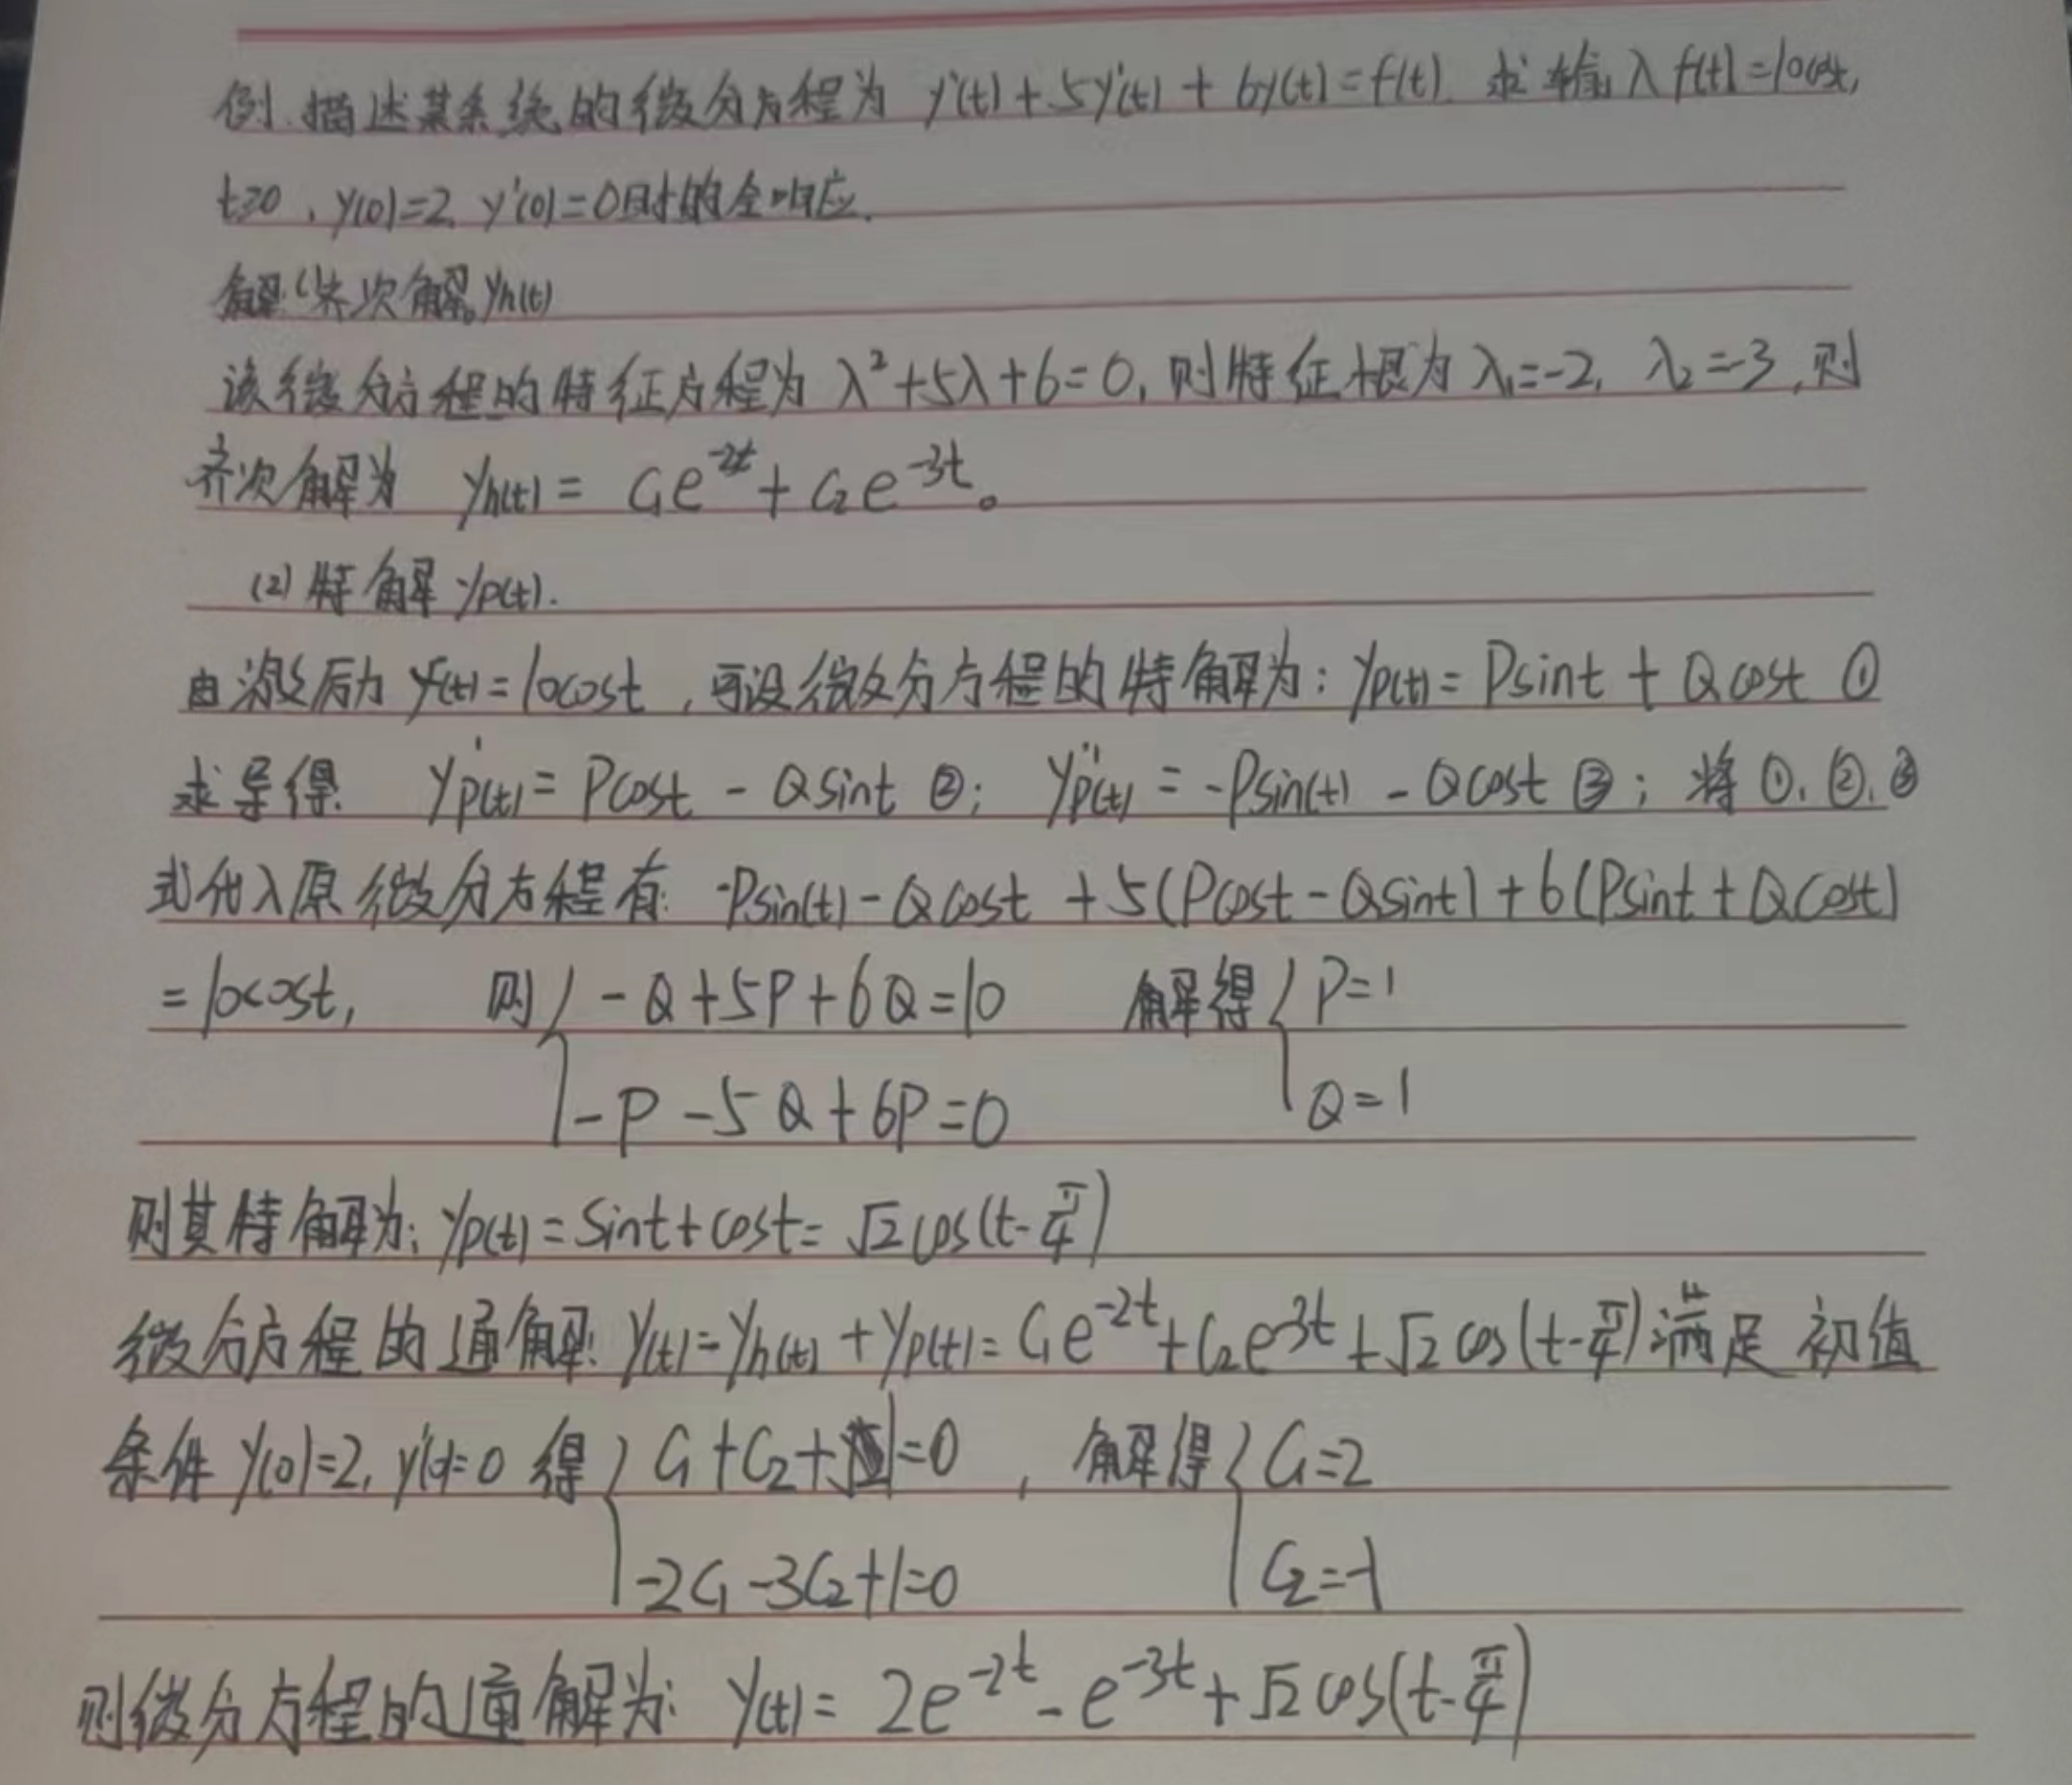 例.描述某系统的微分方程为 y''(t)+5y'(t)+6y(t)=f(t).求输入f(t)=10cost,
t≥0,y(0)=2,y'(0)=0时的全响应.
解:(1)齐次解yh(t)
该微分方程的特征方程为 λ²+5λ+6=0,则特征根为λ₁=-2,λ₂=-3,则
齐次解为 yh(t)= C₁e^{-2t}+C₂e^{-3t}。
(2)特解yp(t).
由激励f(t)=10cost,可设微分方程的特解为:yp(t)=Psint+Qcost ①
求导得 yp'(t)=Pcost-Qsint ②; yp''(t)=-Psin(t)-Qcost ③;将①.②.③
式代入原微分方程有:-Psin(t)-Qcost+5(Pcost-Qsint)+6(Psint+Qcost)
=10cost, 则{-Q+5P+6Q=10 解得{P=1
-P-5Q+6P=0 Q=1
则其特解为:yp(t)=Sint+cost=√2cos(t-π/4)
微分方程的通解:y(t)=yh(t)+yp(t)=C₁e^{-2t}+C₂e^{-3t}+√2cos(t-π/4)满足初值
条件y(0)=2,y'(0)=0得{C₁+C₂+1=0,解得{C₁=2
-2C₁-3C₂+1=0 C₂=-1
则微分方程的通解为:y(t)=2e^{-2t}-e^{-3t}+√2cos(t-π/4)